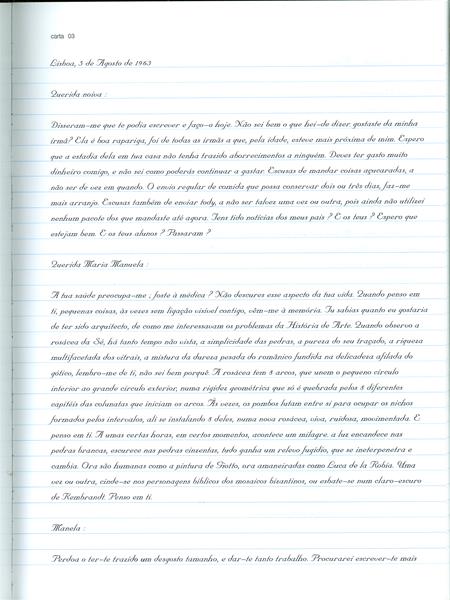 carta 03
Lisboa, 3 de Agosto de 1963
Querida noiva :
Disseram-me que te podia escrever e faço-o hoje. Não sei bem o que hei-de dizer. gostaste da minha
irmã? Ela é boa rapariga, foi de todas as irmãs a que, pela idade, esteve mais próxima de mim. Espero
que a estadia dela em tua casa não tenha trazido aborrecimentos a ninguém. Deves ter gasto muito
dinheiro comigo, e não sei como poderás continuar a gastar. Escusas de mandar coisas açucaradas, a
não ser de vez em quando. O envio regular de comida que possa conservar dois ou três dias, faz-me
mais arranjo. Escusas também de enviar tody, a não ser talvez uma vez ou outra, pois ainda não utilizei
nenhum pacote dos que mandaste até agora. Tens tido notícias dos meus pais ? E os teus ? Espero que
estejam bem. E os teus alunos ? Passaram ?
Querida Maria Manuela :
A tua saúde preocupa-me ; foste à médica ? Não descures esse aspecto da tua vida. Quando penso em
ti, pequenas coisas, às vezes sem ligação visível contigo, vêm-me à memória. Tu sabias quanto eu gostaria
de ter sido arquitecto, de como me interessavam os problemas da História de Arte. Quando observo a
rosácea da Sé, há tanto tempo não vista, a simplicidade das pedras, a pureza do seu traçado, a riqueza
multifacetada dos vitrais, a mistura da dureza pesada do românico fundida na delicadeza afilada do
gótico, lembro-me de ti, não sei bem porquê. A rosácea tem 8 arcos, que unem o pequeno círculo
interior ao grande círculo exterior, numa rigidez geométrica que só é quebrada pelos 8 diferentes
capitéis das colunatas que iniciam os arcos. Às vezes, os pombos lutam entre si para ocupar os nichos
formados pelos intervalos, ali se instalando 8 deles, numa nova rosácea, viva, ruidosa, movimentada. E
penso em ti. A umas certas horas, em certos momentos, acontece um milagre. a luz encandece nas
pedras brancas, escurece nas pedras cinzentas, tudo ganha um relevo fugidio, que se interpenetra e
cambia. Ora são humanas como a pintura de Giotto, ora amaneiradas como Luca de la Robia. Uma
vez ou outra, cinde-se nos personagens bíblicos dos mosaicos bizantinos, ou esbate-se num claro-escuro
de Rembrandt. Penso em ti.
Manela :
Perdoa o ter-te trazido um desgosto tamanho, e dar-te tanto trabalho. Procurarei escrever-te mais